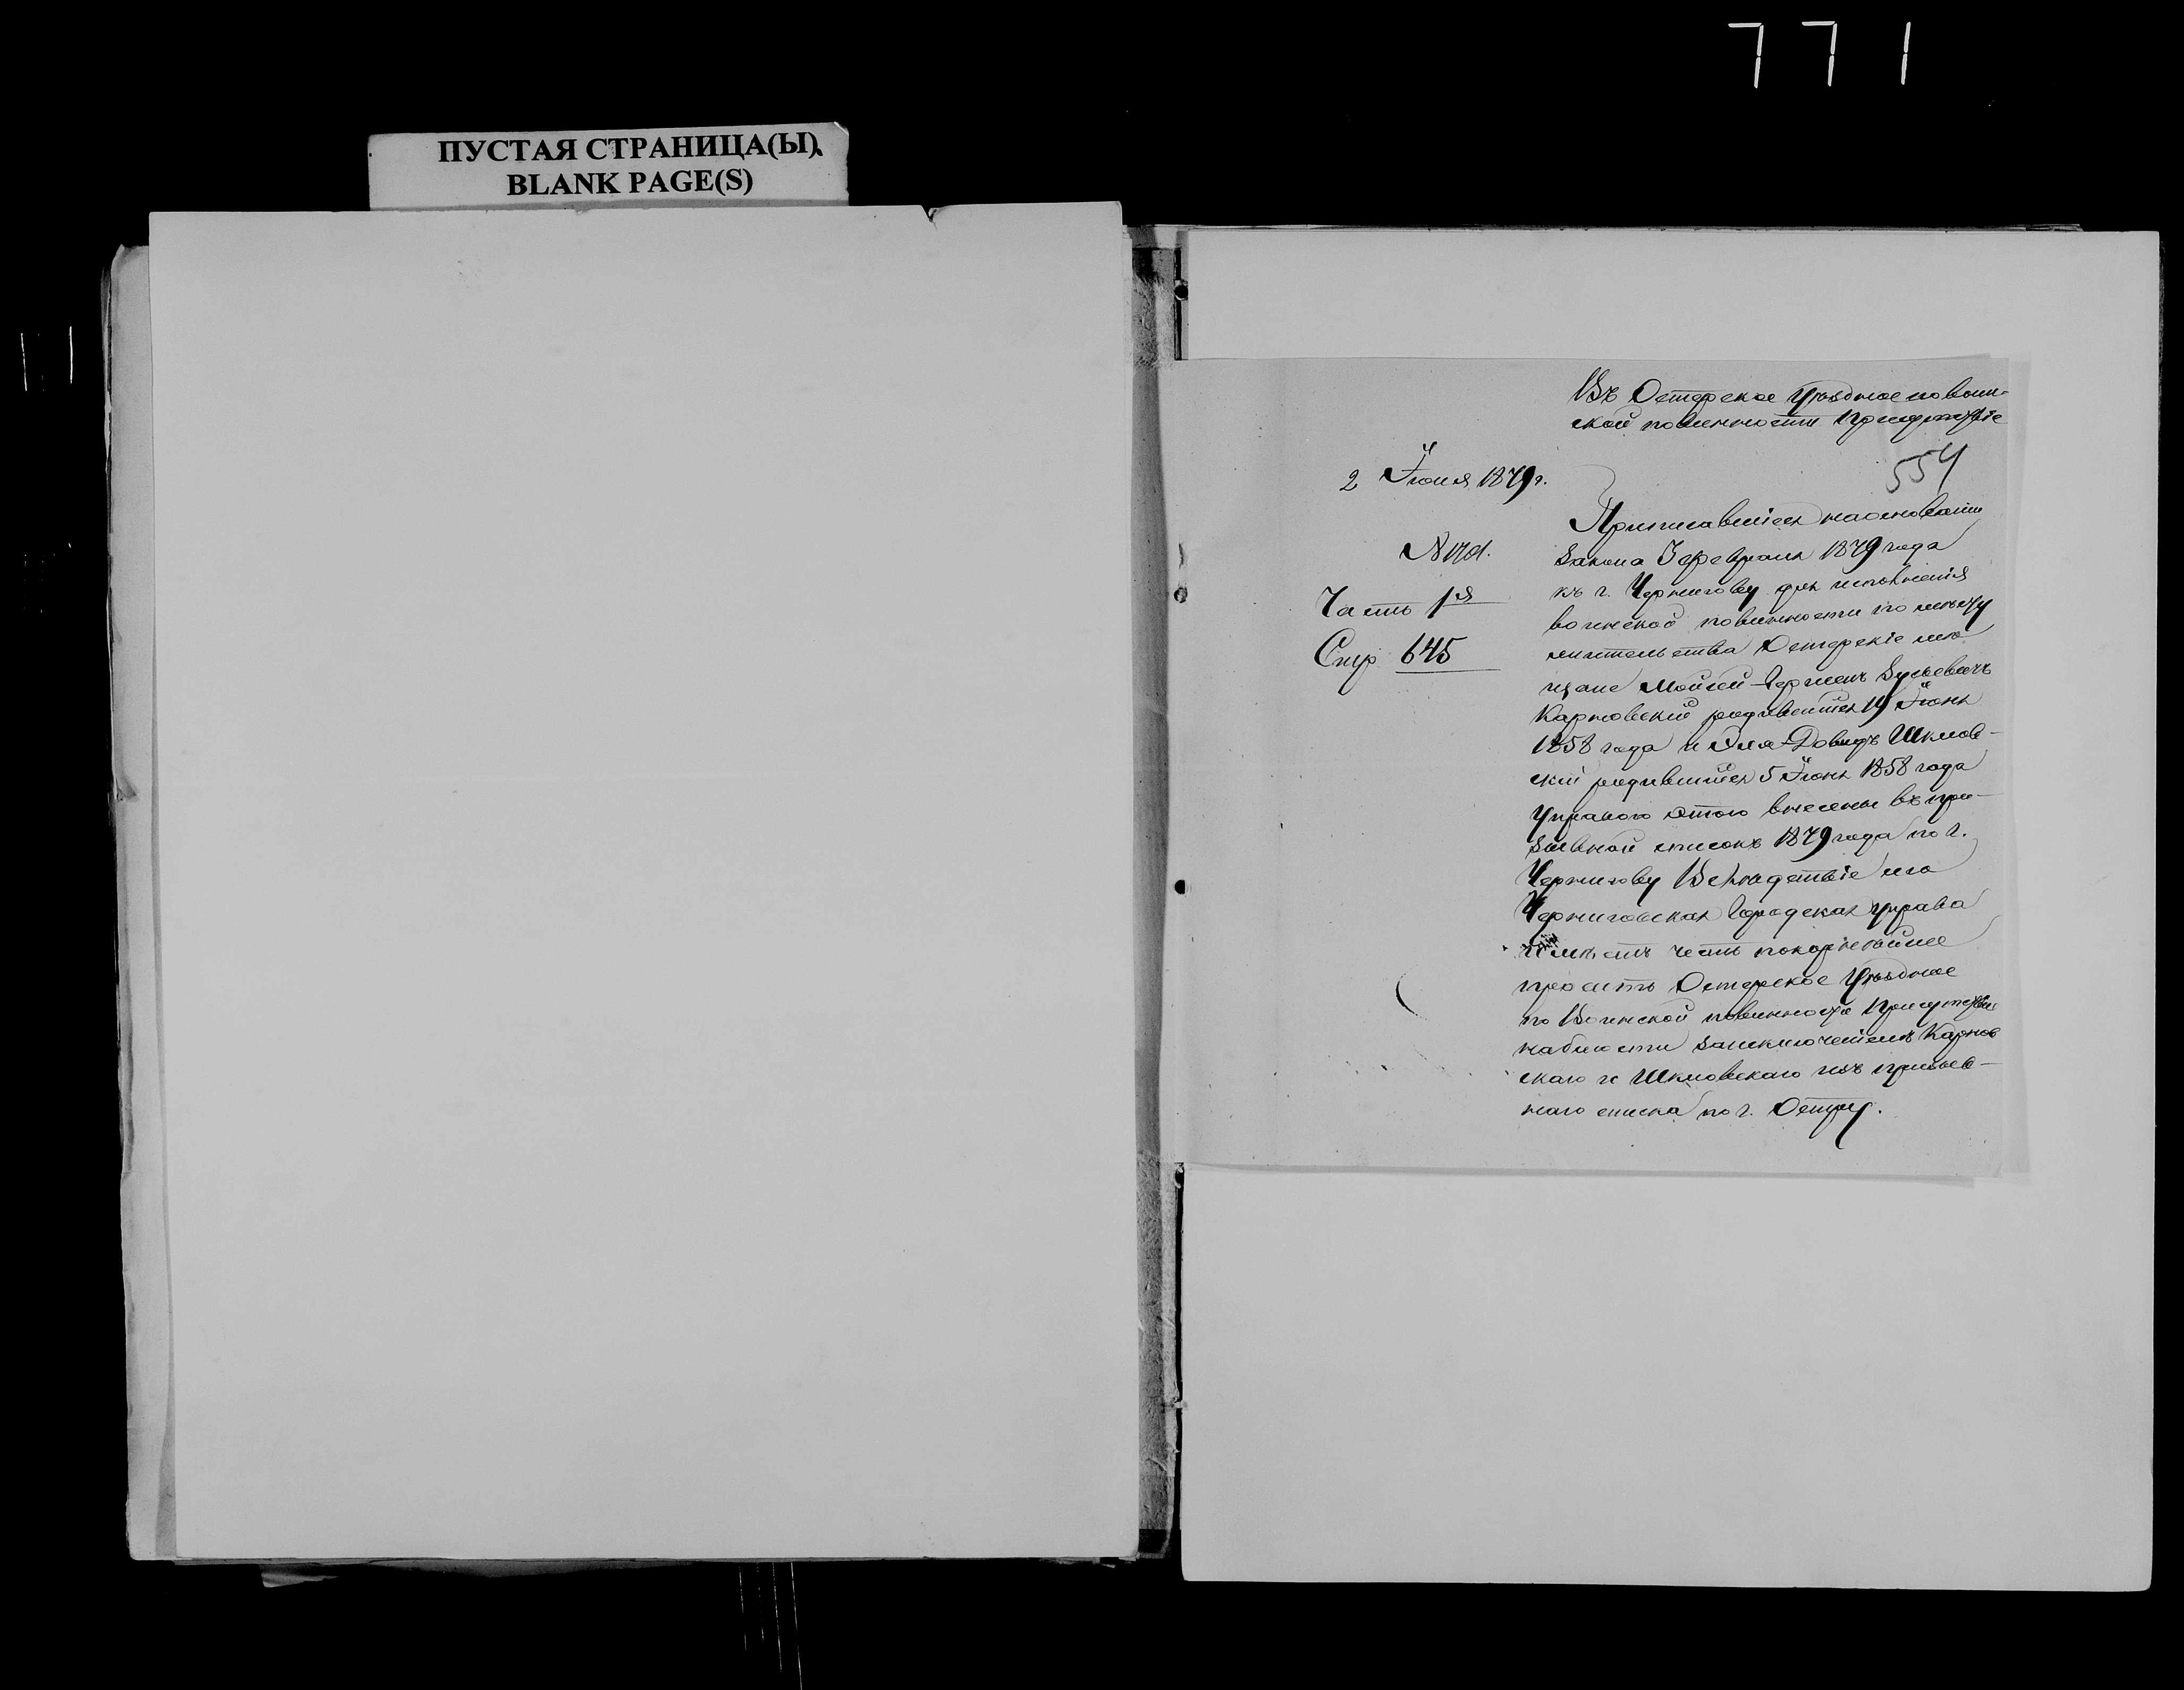 771
ПУСТАЯ СТРАНИЦА(Ы)
BLANK PAGE(S)
Въ Остерское Уѣздное по воин-
ской повинности Присутствіе
554
2 Іюня 1879 г.
Часть 1я
Стр 645
Приписавшіеся на основаніи
закона Февраля 1879 года
къ г. Чернигову для исполненія
воинской повинности по мѣсту
жительства Остерскіе мѣ
щане Мойсей-Гершенъ
Карновскій родившійся 14 Іюня
1858 года и Эля-Довидъ Шклов-
скій родившійся 5 Іюня 1858 года
Управою этою внесены въ при-
зывной списокъ 1879 года по г.
Чернигову Вслѣдствіе чего
Черниговская Городская Управа
имѣетъ честь покорнѣйше
просить Остерское Уѣздное
по Воинской повинности Присутствіе
заисключеніемъ Карнов
скаго и Шкловскаго изъ призыв-
наго списка по г. Остру.